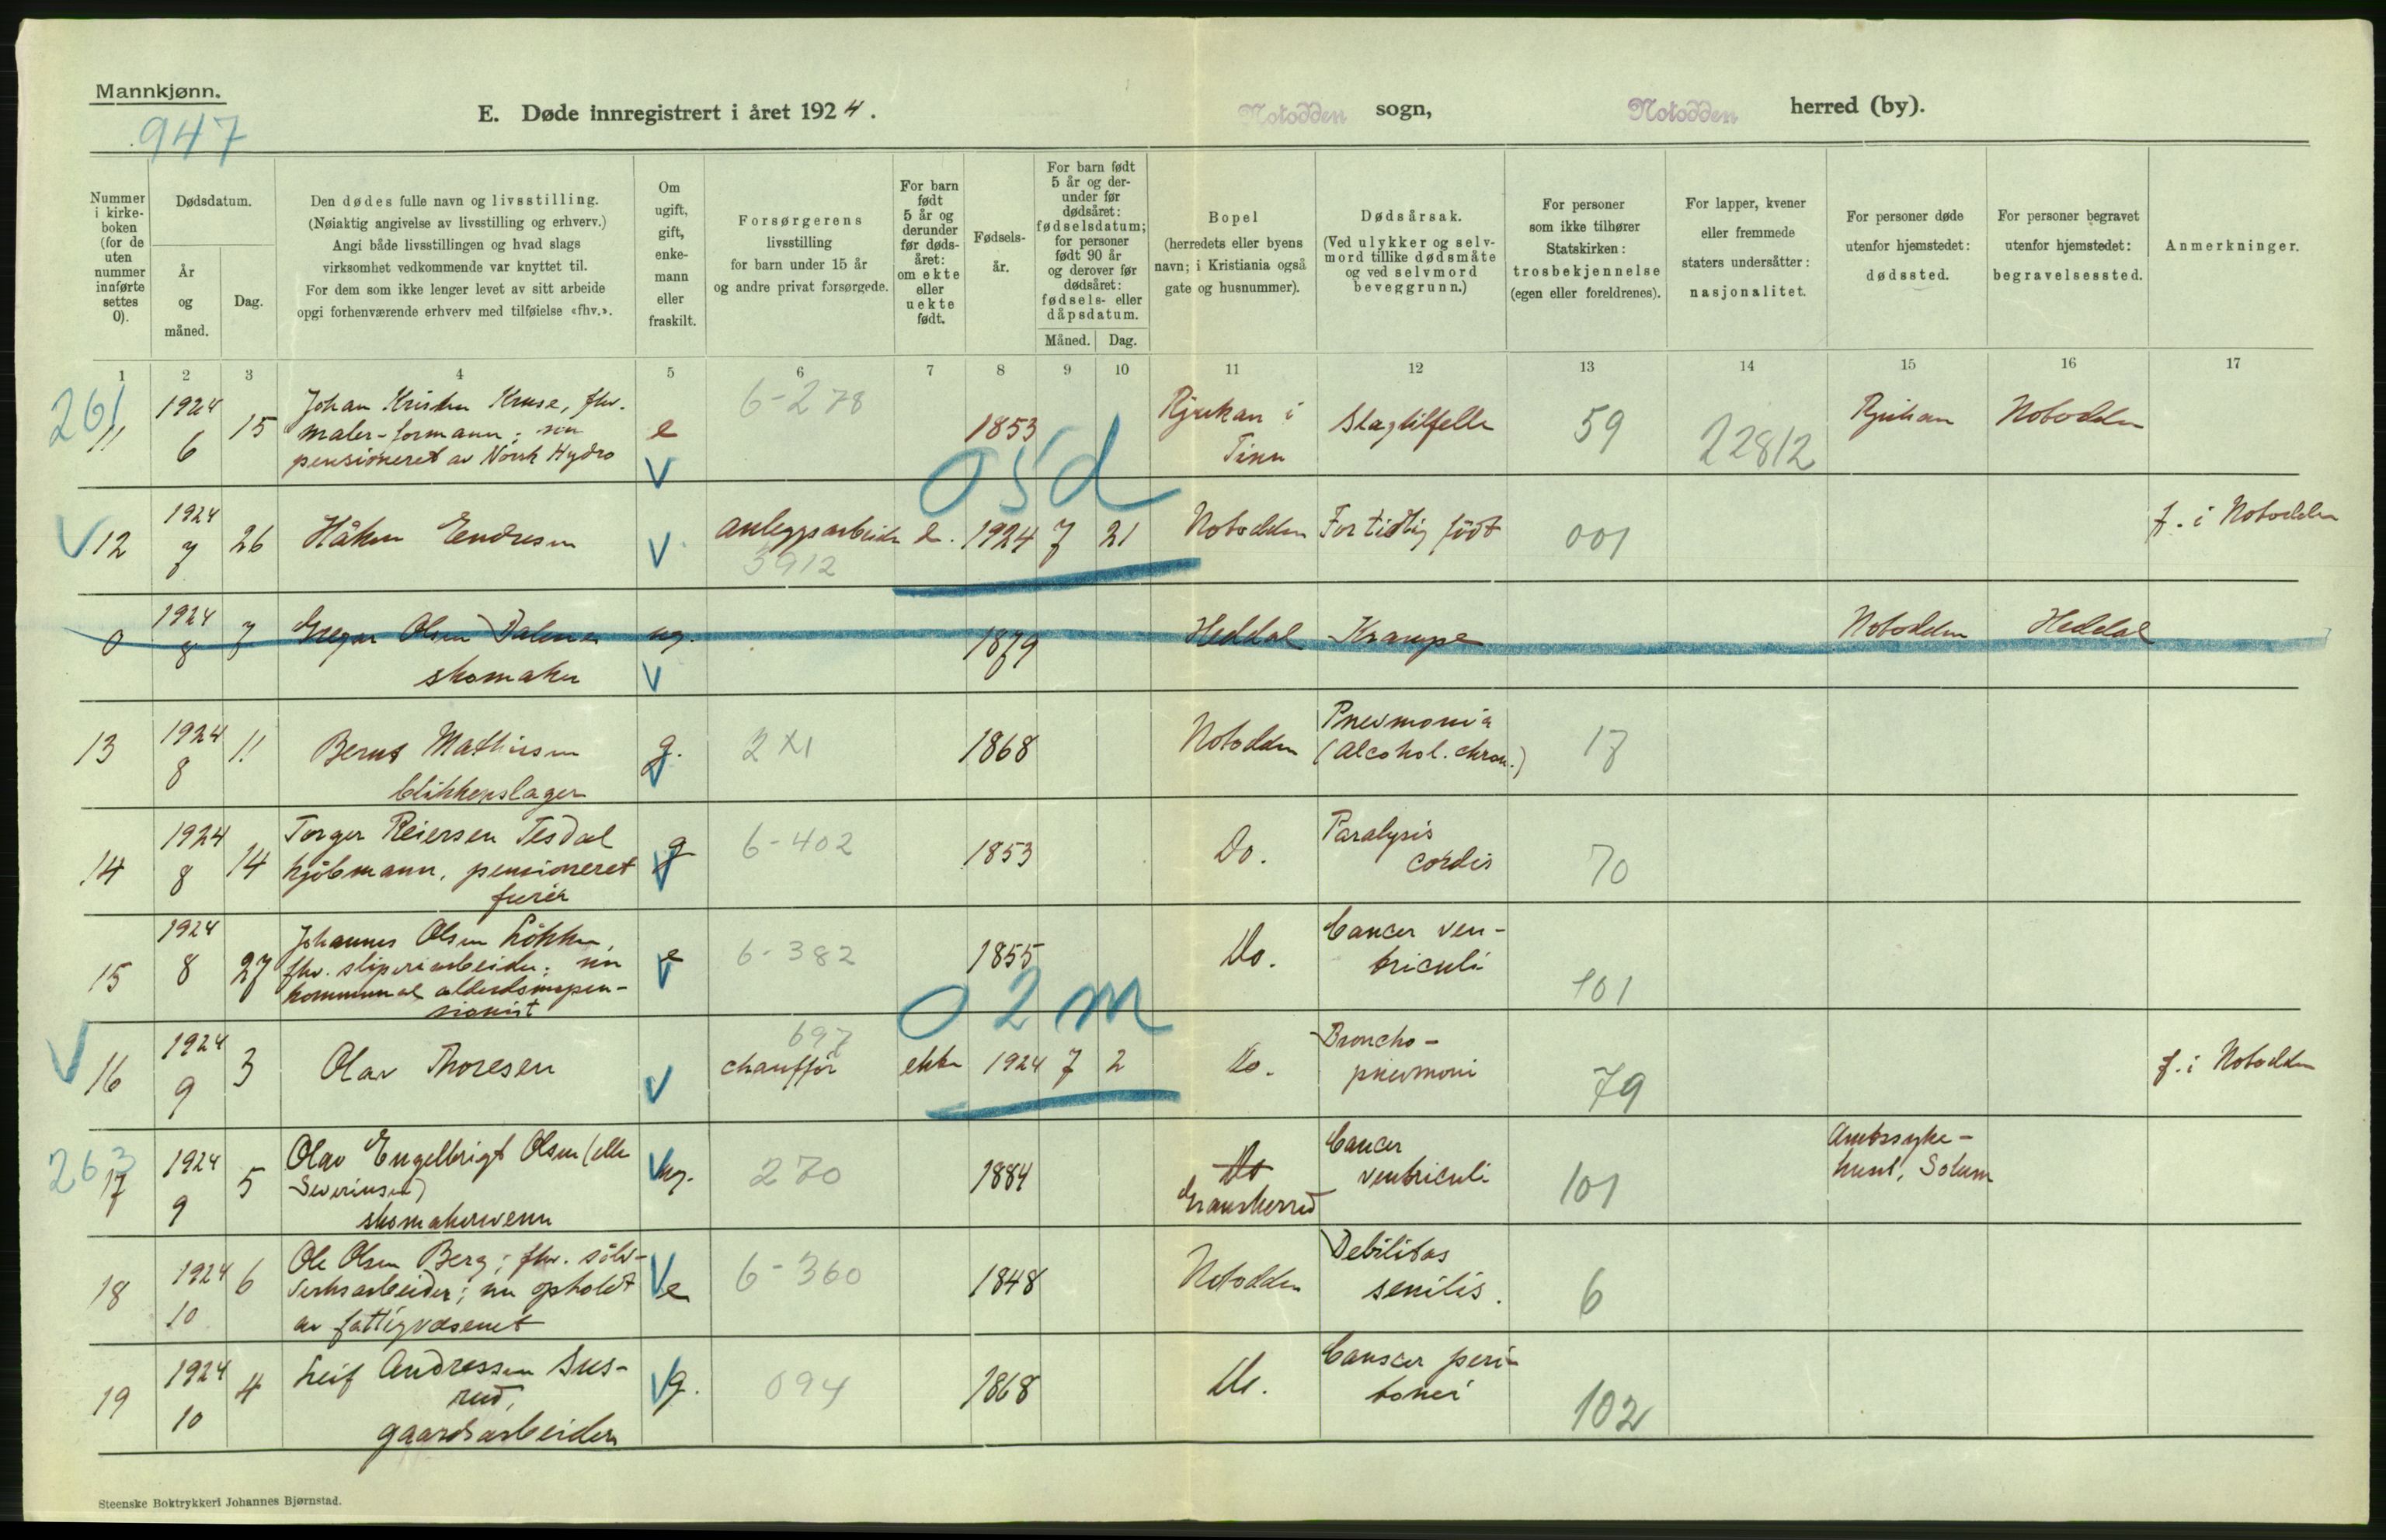 Mannkjønn.
947
E. Døde innregistrert i året 1924.
Notodden sogn,
Notodden herred (by).
Nummer
i kirke-
boken
(for de
uten
nummer
innførte
settes
0).
Dødsdatum.
År
og
måned.
Dag.
Den dødes fulle navn og livsstilling.
(Nøiaktig angivelse av livsstilling og erhverv.)
Angi både livsstillingen og hvad slags
virksomhet vedkommende var knyttet til.
For dem som ikke lenger levet av sitt arbeide
opgi forhenværende erhverv med tilføielse «fhv.».
Om
ugift,
gift,
enke-
mann
eller
fraskilt.
Forsørgerens
livsstilling
for barn under 15 år
og andre privat forsørgede.
For barn
født
5 år og
derunder
før døds-
året:
om ekte
eller
uekte
født.
Fødsels-
år.
For barn født
5 år og der-
under før
dødsåret:
fødselsdatum;
for personer
født 90 år
og derover før
dødsåret:
fødsels- eller
dåpsdatum.
Måned. Dag.
Bopel
(herredets eller byens
navn; i Kristiania også
gate og husnummer).
Dødsårsak.
(Ved ulykker og selv-
mord tillike dødsmåte
og ved selvmord
beveggrunn.)
For personer
som ikke tilhører
Statskirken:
trosbekjennelse
(egen eller foreldrenes).
For lapper, kvener
eller fremmede
staters undersåtter:
nasjonalitet.
For personer døde
utenfor hjemstedet:
dødssted.
For personer begravet
utenfor hjemstedet:
begravelsessted.
Anmerkninger.
1 2 3 4 5 6 7 8 9 10 11 12 13 14 15 16 17
261
11
1924
6
15
Johan Kristen Kruse, fhv.
maler-formann; nu
pensioneret av Norsk Hydro
e
6-278
1853
Rjukan i
Tinn
Slagtilfelle
59
22812
Rjukan
Notodden
05d
12
1924
7
26
Håkon Endresen
anleggsarbeider
5912
e.
1924 7 21
Notodden
For tidlig født
001
f. i Notodden
0
1924
8
7
Gregar Olsen Dalene
skomaker
ug.
1879
Heddal
Krampe
Notodden
Heddal
13
1924
8
11
Bernt Mathisen
blikkenslager
g.
2X1
1868
Notodden
Pnevmonia
(alcohol. chron.)
17
14
1924
8
14
Torger Reiersen Tesdal
kjøbmann, pensioneret
furér
g
6-402
1853
Do.
Paralysis
cordis
70
15
1924
8
27
Johannes Olsen Løkken,
fhv. sliperiarbeider; nu
kommunal alderdomspen-
sionist
e
6-382
1855
Do.
Cancer ven-
triculi
101
02m
16
1924
9
3
Olav Thoresen
697
chauffør
ekte
1924 7 2
Do.
Broncho-
pnevmoni
79
f. i Notodden
263
17
1924
9
5
Olav Engelbrigt Olsen (eller
Severinsen)
skomakersvenn
ug.
270
1884
Do
Gransherred
Cancer
ventriculi
101
Amtssyke-
huset, Solum
18
1924
10
6
Ole Olsen Berg; fhv. sølv-
verksarbeider; nu opholdt
av fattigvæsenet
e
6-360
1848
Notodden
Debilitas
senilis.
6
19
1924
10
4
Leif Andressen Sus-
rud,
gaardsarbeider
g.
094
1868
Do.
Canscer peri-
tonei
102
Steenske Boktrykkeri Johannes Bjørnstad.